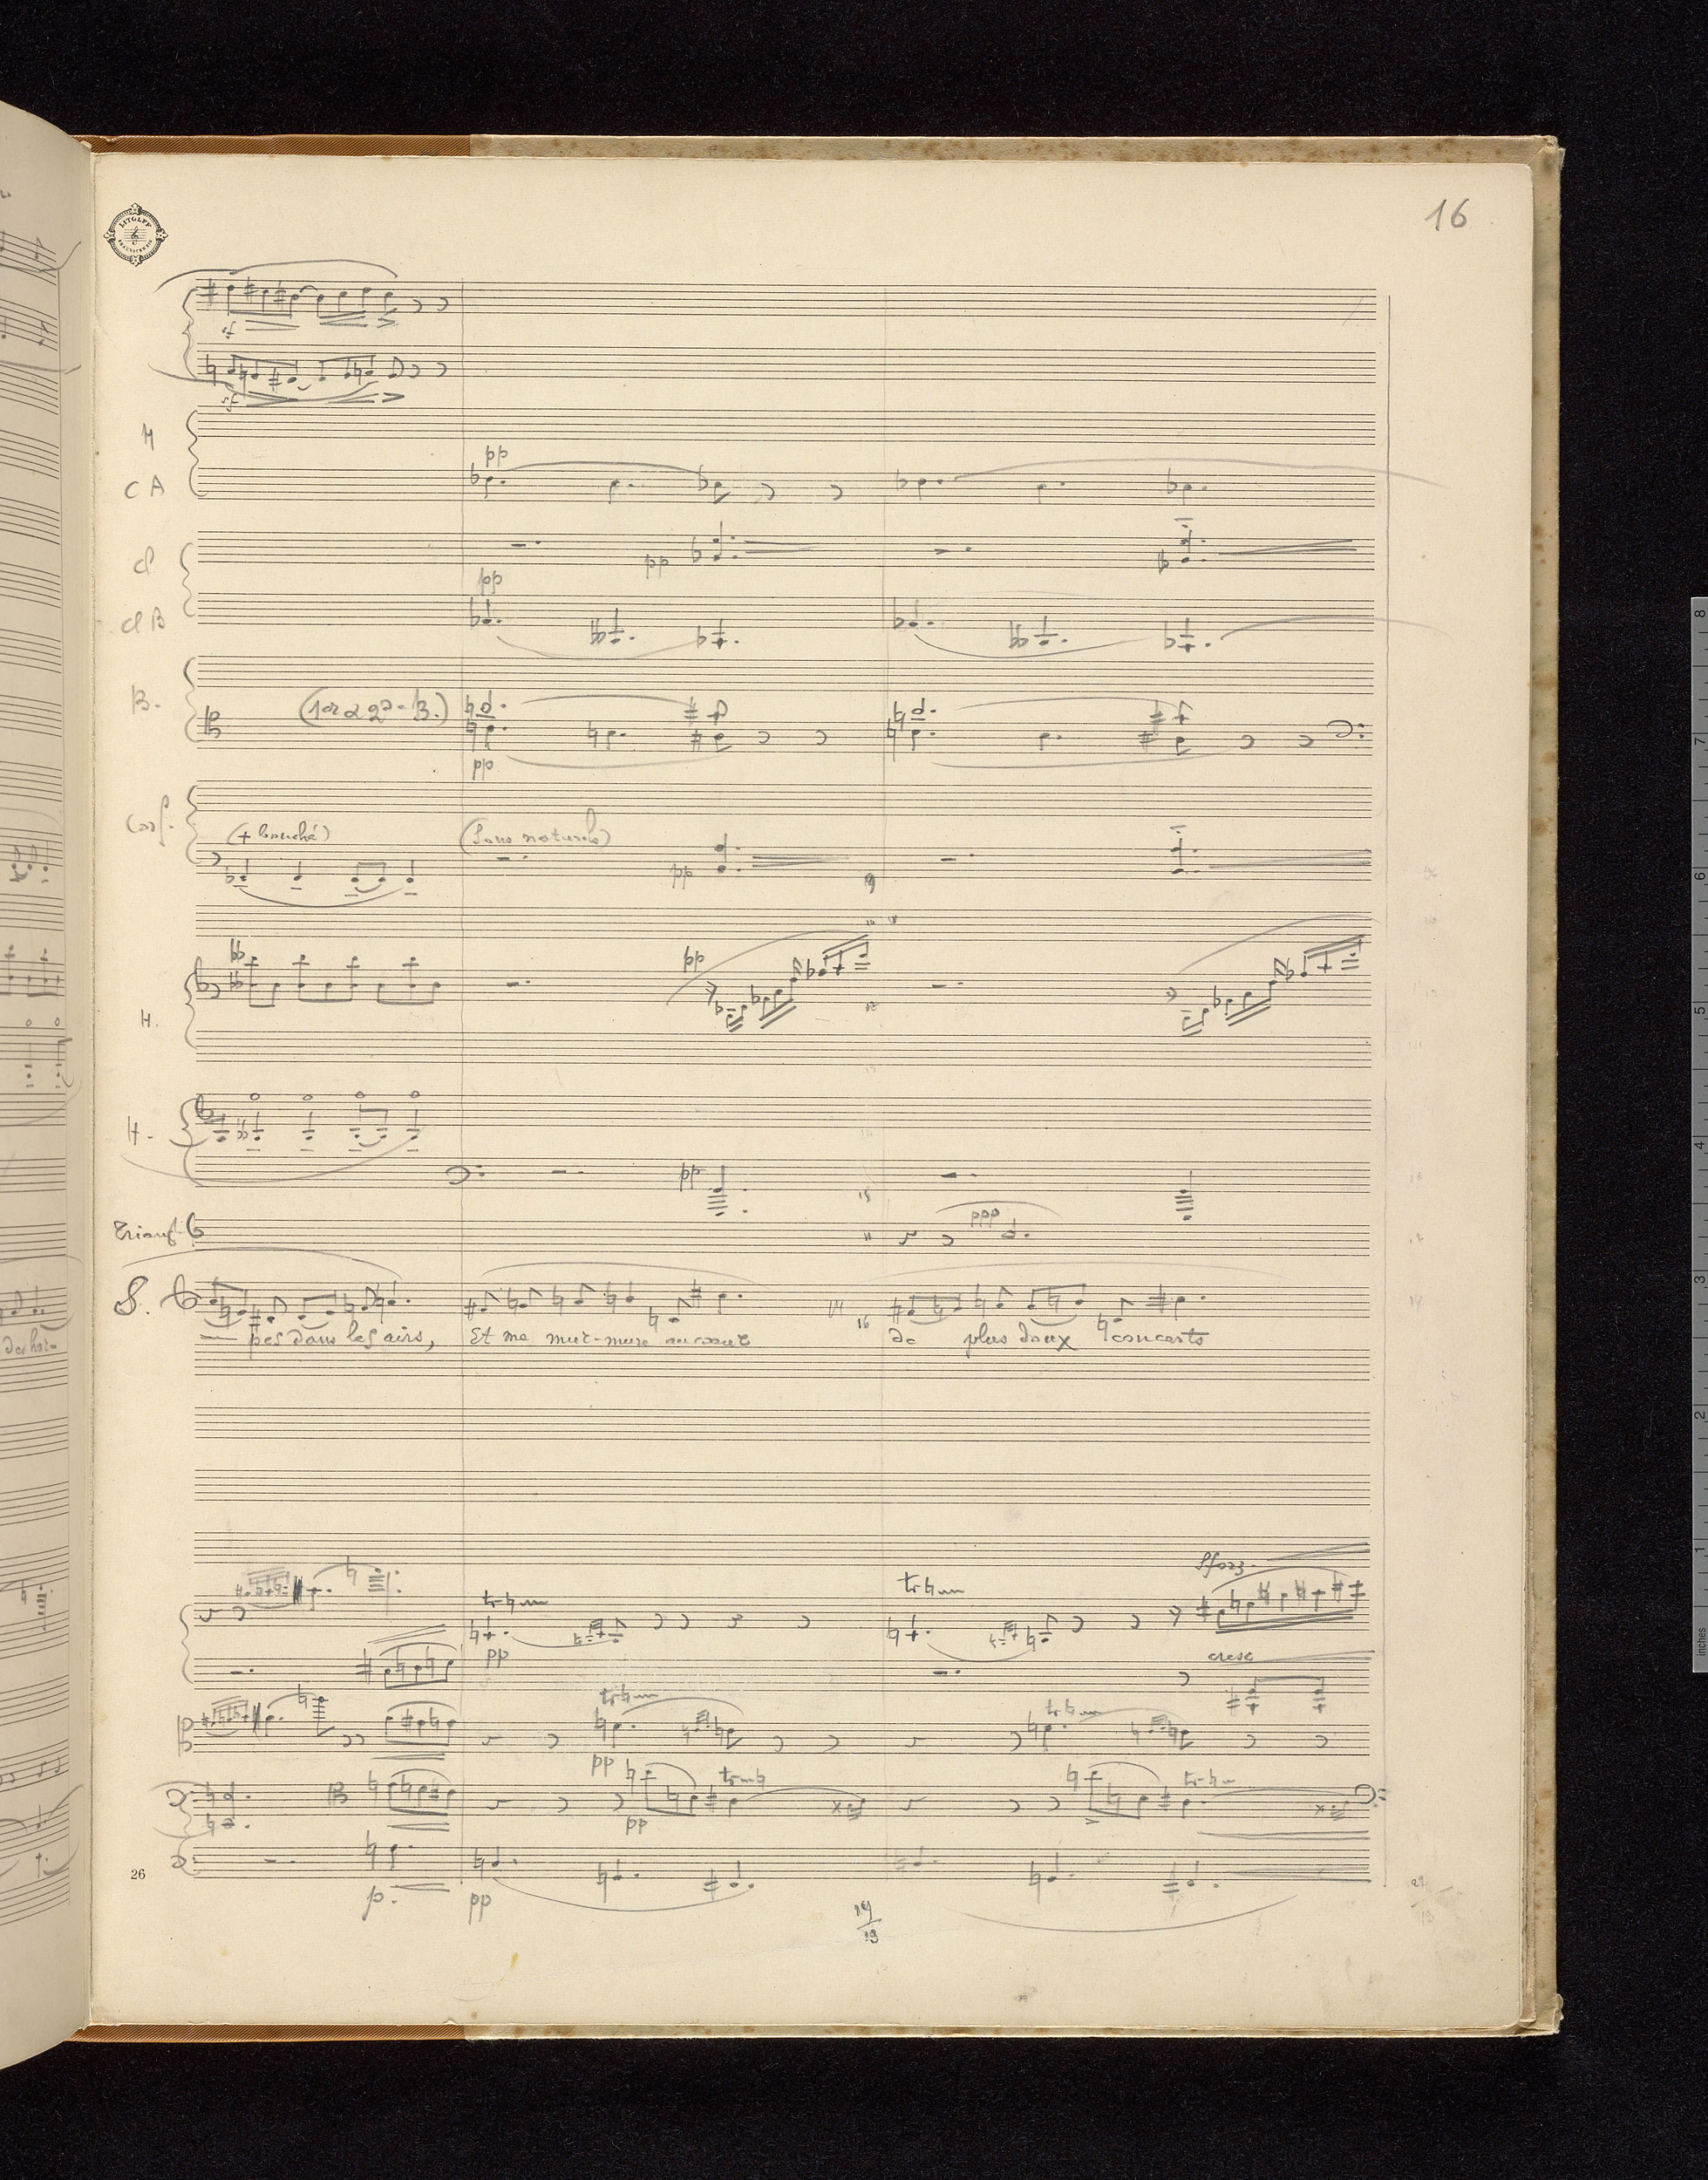 16
LITOLFF
BRAUNSCHWEIG
sf
sf
H
CA
pp
cl
pp
pp
cl B
B.
(1er & 2e B.)
pp
(+ bouché)
(Sons naturels)
pp
pp
H.
H.
pp
15
Triang.
ppp
S.
16
pes dans les airs, Et me mur-mure au cœur de plus doux concerts
Sforz.
tr
tr
pp
cresc
tr
tr
pp
tr
tr
pp
26
p.
pp
19
19